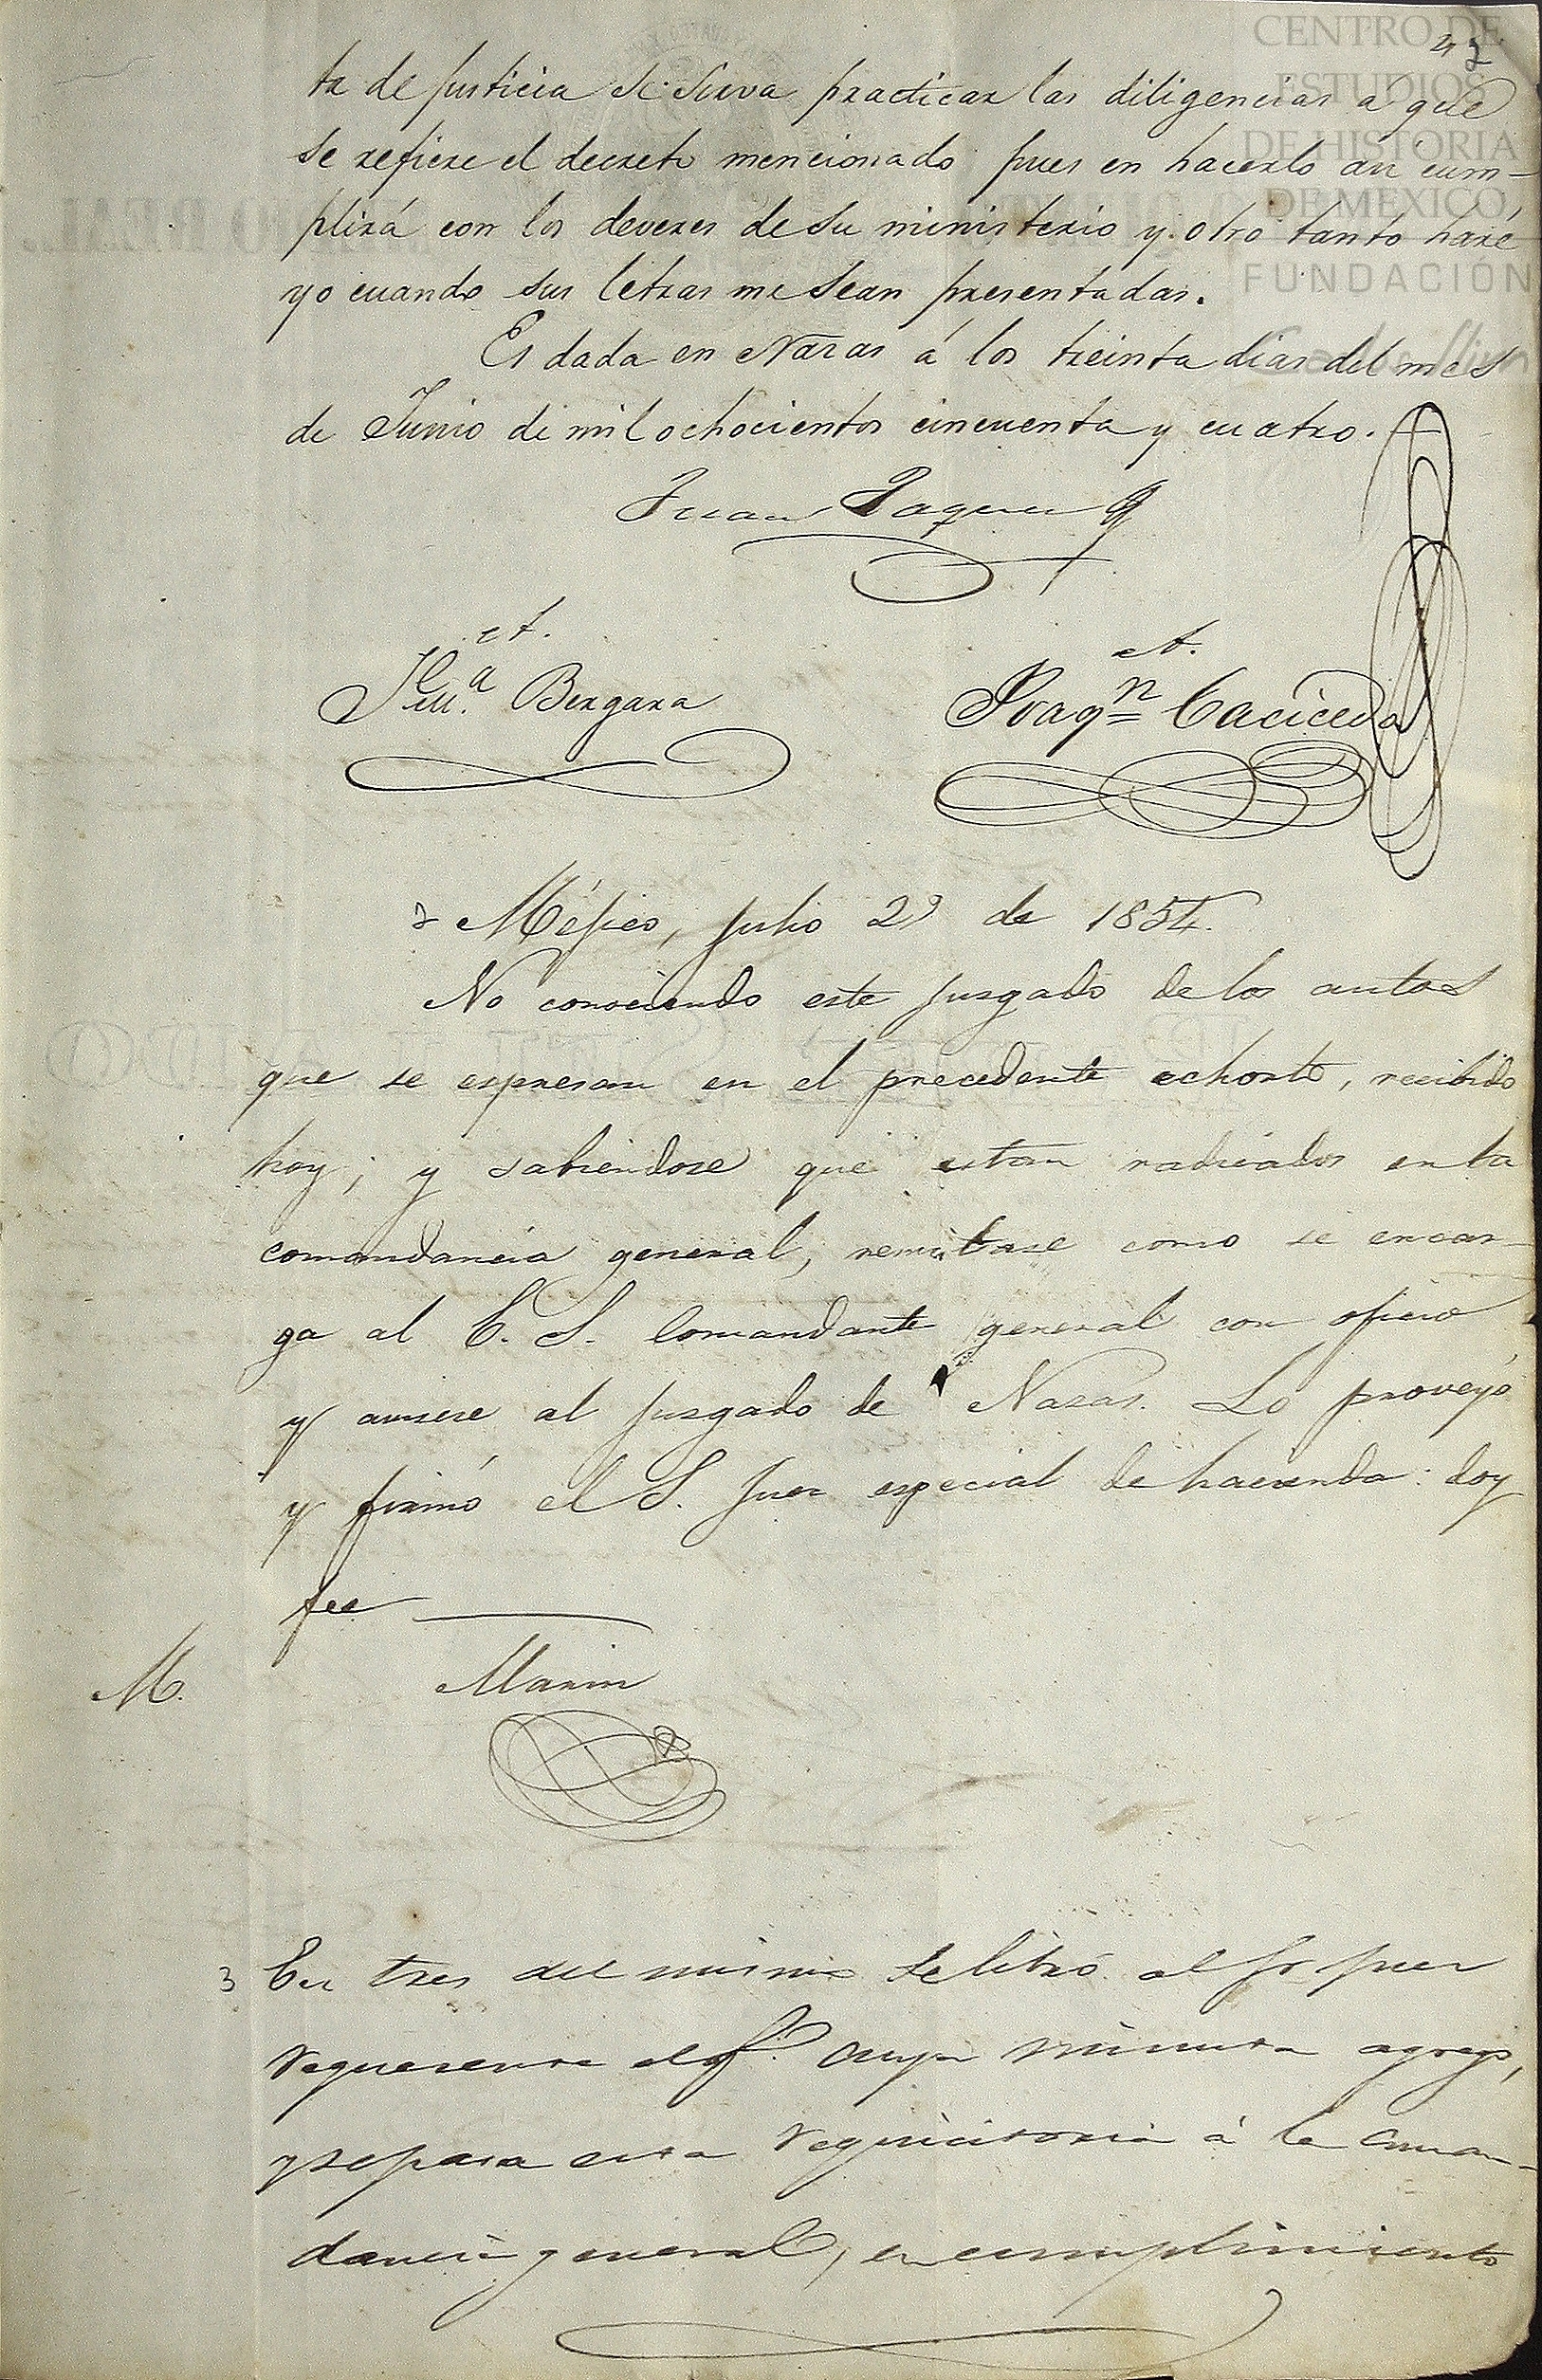 CENTRO DE
ESTUDIOS
DE HISTORIA
DE MEXICO
FUNDACIÓN
te de justicia se sirva practicar las diligencias a que
se refiere el decreto mencionado pues en hacerlo asi cum-
plirá con los deveres de su ministerio y otro tanto haré
yo cuando sus letras me sean presentadas.
Es dada en Nazas á los treinta dias del mes
de Junio de mil ochocientos cincuenta y cuatro.
Juan
A.
Bergara
A.
Joaqn Cacicedo
Méjico, julio 29 de 1854.
No conociendo este juzgado de los autos
que se espresan en el precedente echorto, recibido
hoy; y sabiendose que estan radicados en la
comandancia general, remitase como se encar-
ga al E. S. Comandante general con oficio
y avisese al juzgado de Nazas. Lo proveyó
y firmó el S. Juez especial de hacienda: doy
fee
M.
Marin
3 En tres del mismo se libró al Sr juez
requerente el of.o cuya minuta agrego,
y se pasa esta requicitoria á la Coman-
dancia general, en cumplimiento